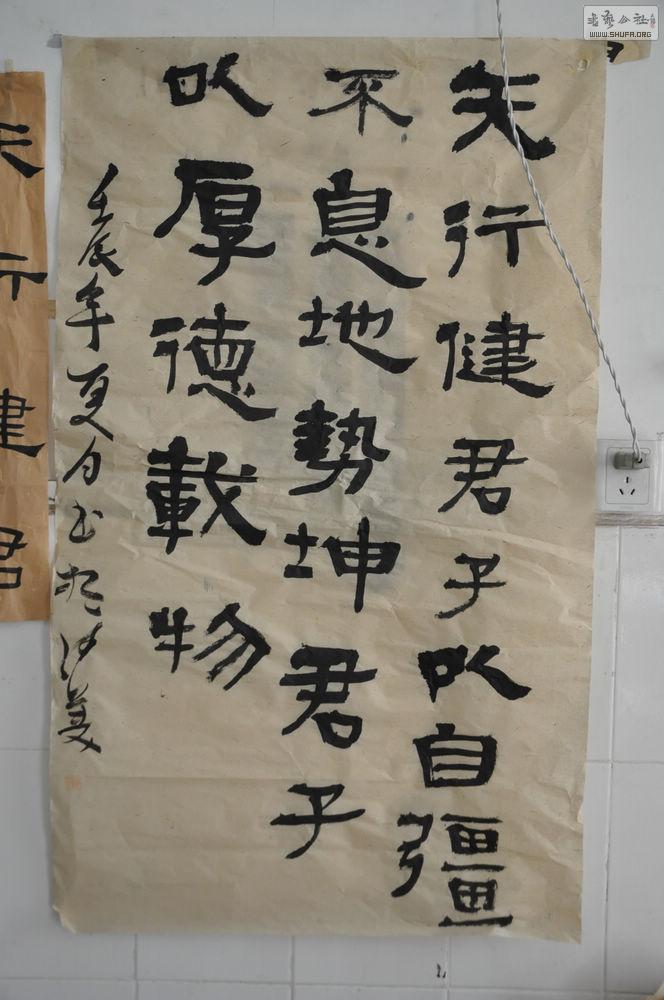 天行健君子以自彊
不息地勢坤君子
以厚德載物
壬辰年夏月书
天行健君
书艺公社
WWW.SHUFA.ORG